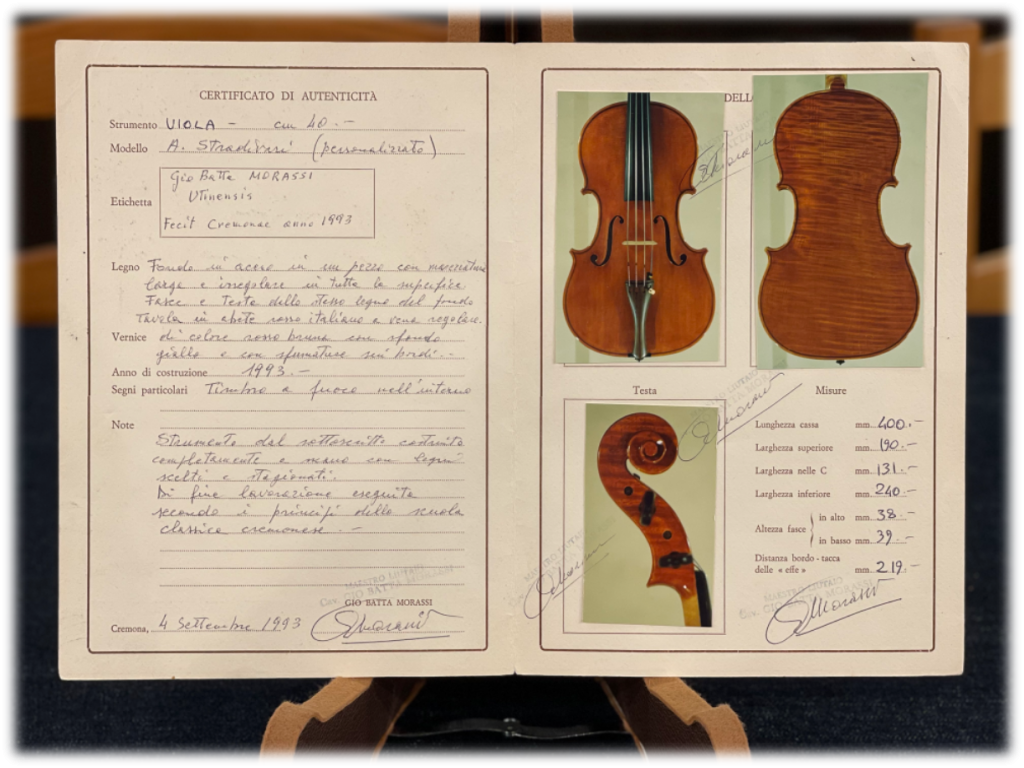 CERTIFICATO DI AUTENTICITÀ
Strumento VIOLA – cm 40.–
Modello A. Stradivari (personalizzato)
Etichetta
Gio Batta MORASSI
Utinensis
Fecit Cremonae anno 1993
Legno Fondo in acero in un pezzo con marezzatura
larga e irregolare in tutta la superfice
Fasce e Testa dello stesso legno del fondo
Tavola in abete rosso italiano a vena regolare.
Vernice di colore rosso bruna con sfondo
giallo e con sfumature sui bordi.–
Anno di costruzione 1993.–
Segni particolari Timbro a fuoco nell'interno
Note
Strumento dal sottoscritto costruito
completamente a mano con legni
scelti e stagionati.
Di fine lavorazione eseguita
secondo i principi della scuola
classica cremonese.–
MAESTRO LIUTAIO
Cav. GIO BATTA MORASSI
GIO BATTA MORASSI
Cremona, 4 Settembre 1993
DELLO
Testa
Misure
Lunghezza cassa mm. 400.–
Larghezza superiore mm. 190.–
Larghezza nelle C mm. 131.–
Larghezza inferiore mm. 240.–
Altezza fasce
in alto mm. 38.–
in basso mm. 39.–
Distanza bordo - tacca
delle « effe » mm. 219.–
MAESTRO LIUTAIO
Cav. GIO BATTA MORASSI
GMorassi